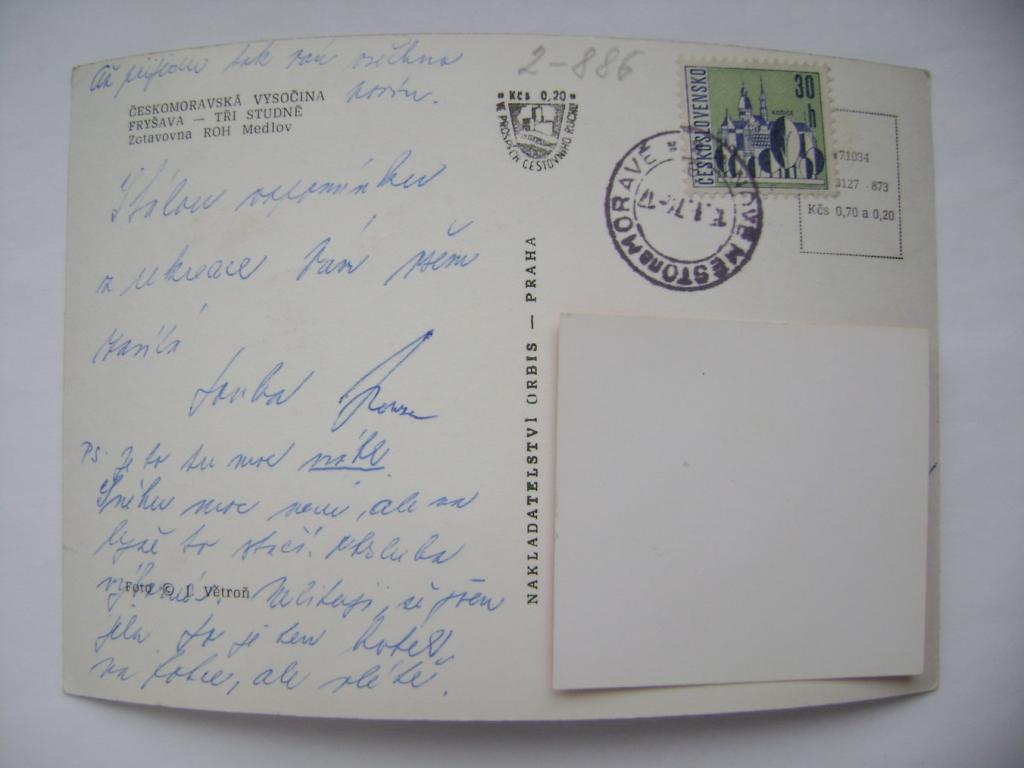 Až přijedu tak vám všechno
povím.
2-886
ČESKOMORAVSKÁ VYSOČINA
FRYŠAVA — TŘI STUDNĚ
Zotavovna ROH Medlov
Kčs 0,20
VE PROSPĚCH CESTOVNÍHO RUCHU
ČESKOSLOVENSKO
30 h
KOŠICE
NOVÉ MĚSTO NA MORAVĚ
71034
3127 873
Kčs 0,70 a 0,20
Milou vzpomínku
z rekreace Vám všem
zasílá
Ps. Je to tu moc
Sněhu moc není, ale na
lyže to stačí. Obsluha
výborná. Nelituji, že jsem
jela. To je ten hotel
na fotce, ale v létě.
Foto © J. Větroň
NAKLADATELSTVÍ ORBIS — PRAHA